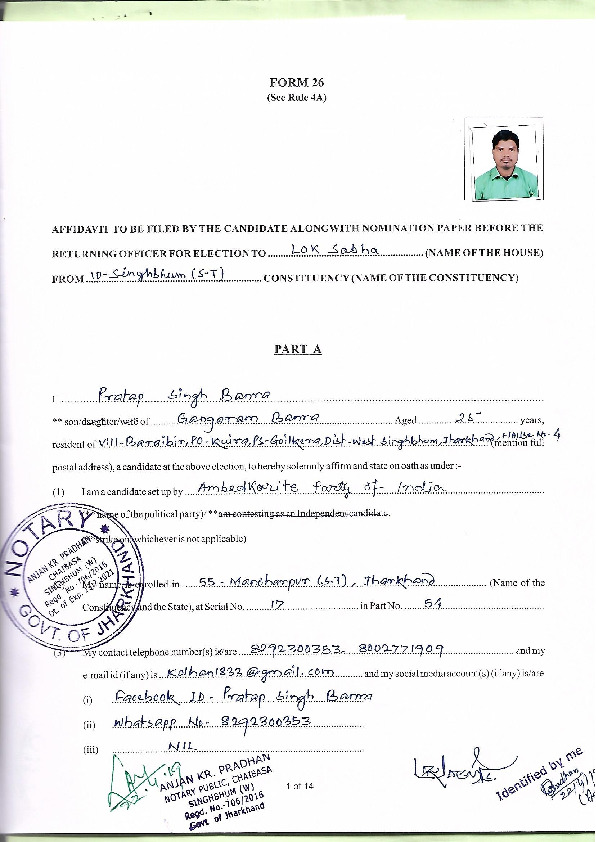 FORM 26
(See Rule 4A)
AFFIDAVIT TO BE FILED BY THE CANDIDATE ALONGWITH NOMINATION PAPER BEFORE THE
RETURNING OFFICER FOR ELECTION TO Lok Sabha (NAME OF THE HOUSE)
FROM 10-Singhbhum (S-T) CONSTITUENCY (NAME OF THE CONSTITUENCY)
PART A
I Pratap Singh Banra
** son/daughter/wife of Gangaram Banra Aged 25 years,
resident of Vill-Baraibir, PO-Kuira, PS-Goilkera, Dist-West Singhbhum, Jharkhand, (mention full
postal address), a candidate at the above election, to hereby solemnly affirm and state on oath as under :-
(1) I am a candidate set up by Ambedkarite Party of India
name of the political party)/ **am contesting as an Independent candidate.
whichever is not applicable)
enrolled in 55 - Manoharpur (S-T), Jharkhand (Name of the
Constituency and the State), at Serial No. 17 in Part No. 54
(3) My contact telephone number(s) is/are 8292300353, 8002771909 and my
e mail id (if any) is Kolhan1833@gmail.com and my social media account(s) (if any) is/are
(i) Facebook ID - Pratap Singh Banra
(ii) Whatsapp No- 8292300353
(iii) NIL
NOTARY
ANJAN KR. PRADHAN
CHAIBASA
SINGHBHUM (W)
Regd. No.-706/2016
GOVT. OF JHARKHAND
22.4.19
ANJAN KR. PRADHAN
NOTARY PUBLIC, CHAIBASA
SINGHBHUM (W)
Regd. No.-706/2016
Govt of Jharkhand
1 of 14
Identified by me